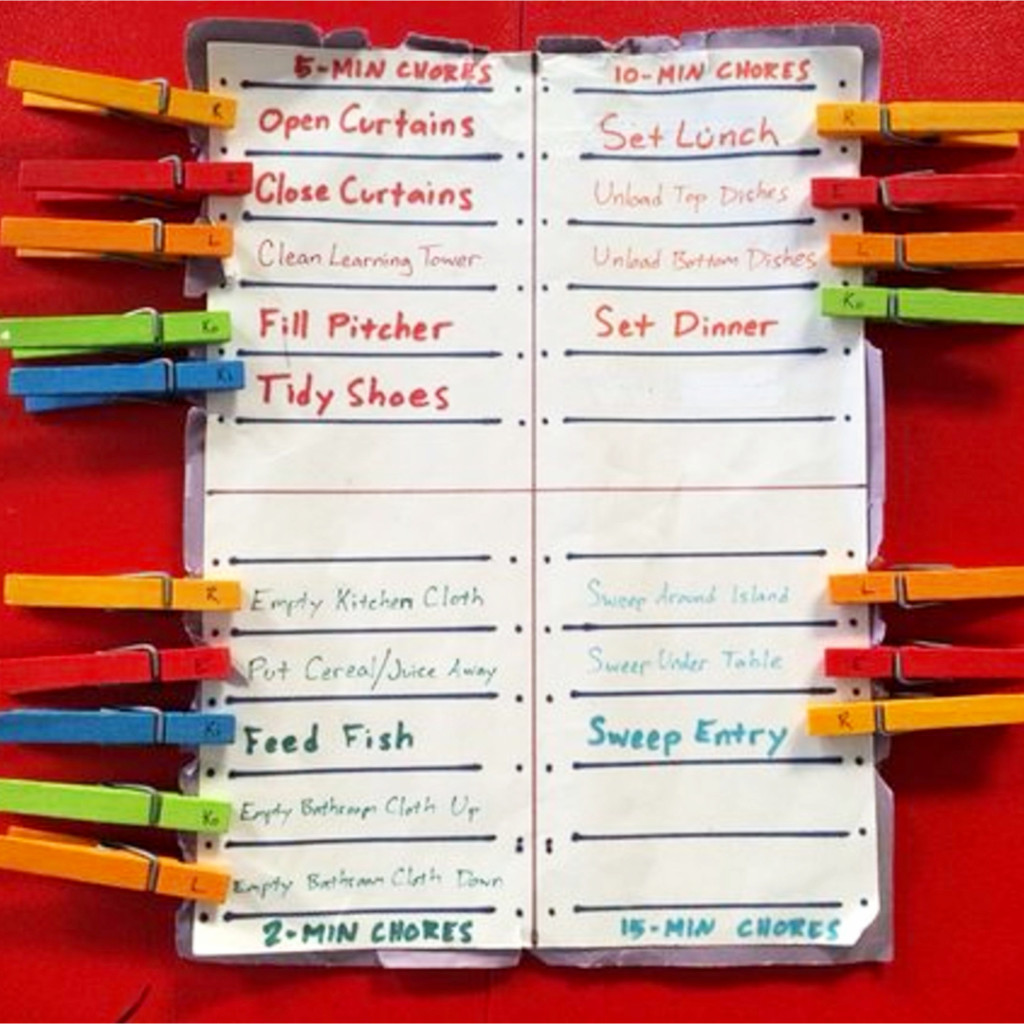 5-MIN CHORES
R Open Curtains
E Close Curtains
L Clean Learning Tower
Ko Fill Pitcher
Ki Tidy Shoes
10-MIN CHORES
Set Lunch R
Unload Top Dishes E
Unload Bottom Dishes L
Set Dinner Ko
R Empty Kitchen Cloth
E Put Cereal/Juice Away
Ki Feed Fish
Ko Empty Bathroom Cloth Up
L Empty Bathroom Cloth Down
2-MIN CHORES
Sweep Around Island L
Sweep Under Table E
Sweep Entry R
15-MIN CHORES